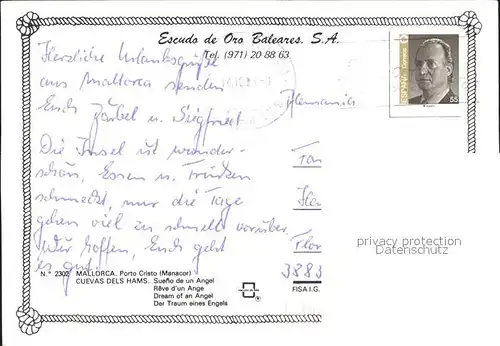 Escudo de Oro Baleares, S.A.
Tel. (971) 20 88 63
ESPAÑA
Correos
55
Herzliche Urlaubsgrüße
aus Mallorca senden
Euch Bärbel u. Siegfried
Die Insel ist wunder-
schön, Essen u. Trinken
schmeckt, nur die Tage
gehen viel zu schnell vorüber.
Wir hoffen, Euch geht
es gut.
Fam
Flor
3883
privacy protection
Datenschutz
N.º 2302 MALLORCA. Porto Cristo (Manacor)
CUEVAS DELS HAMS. Sueño de un Angel
Rêve d'un Ange
Dream of an Angel
Der Traum eines Engels
FISA I.G.